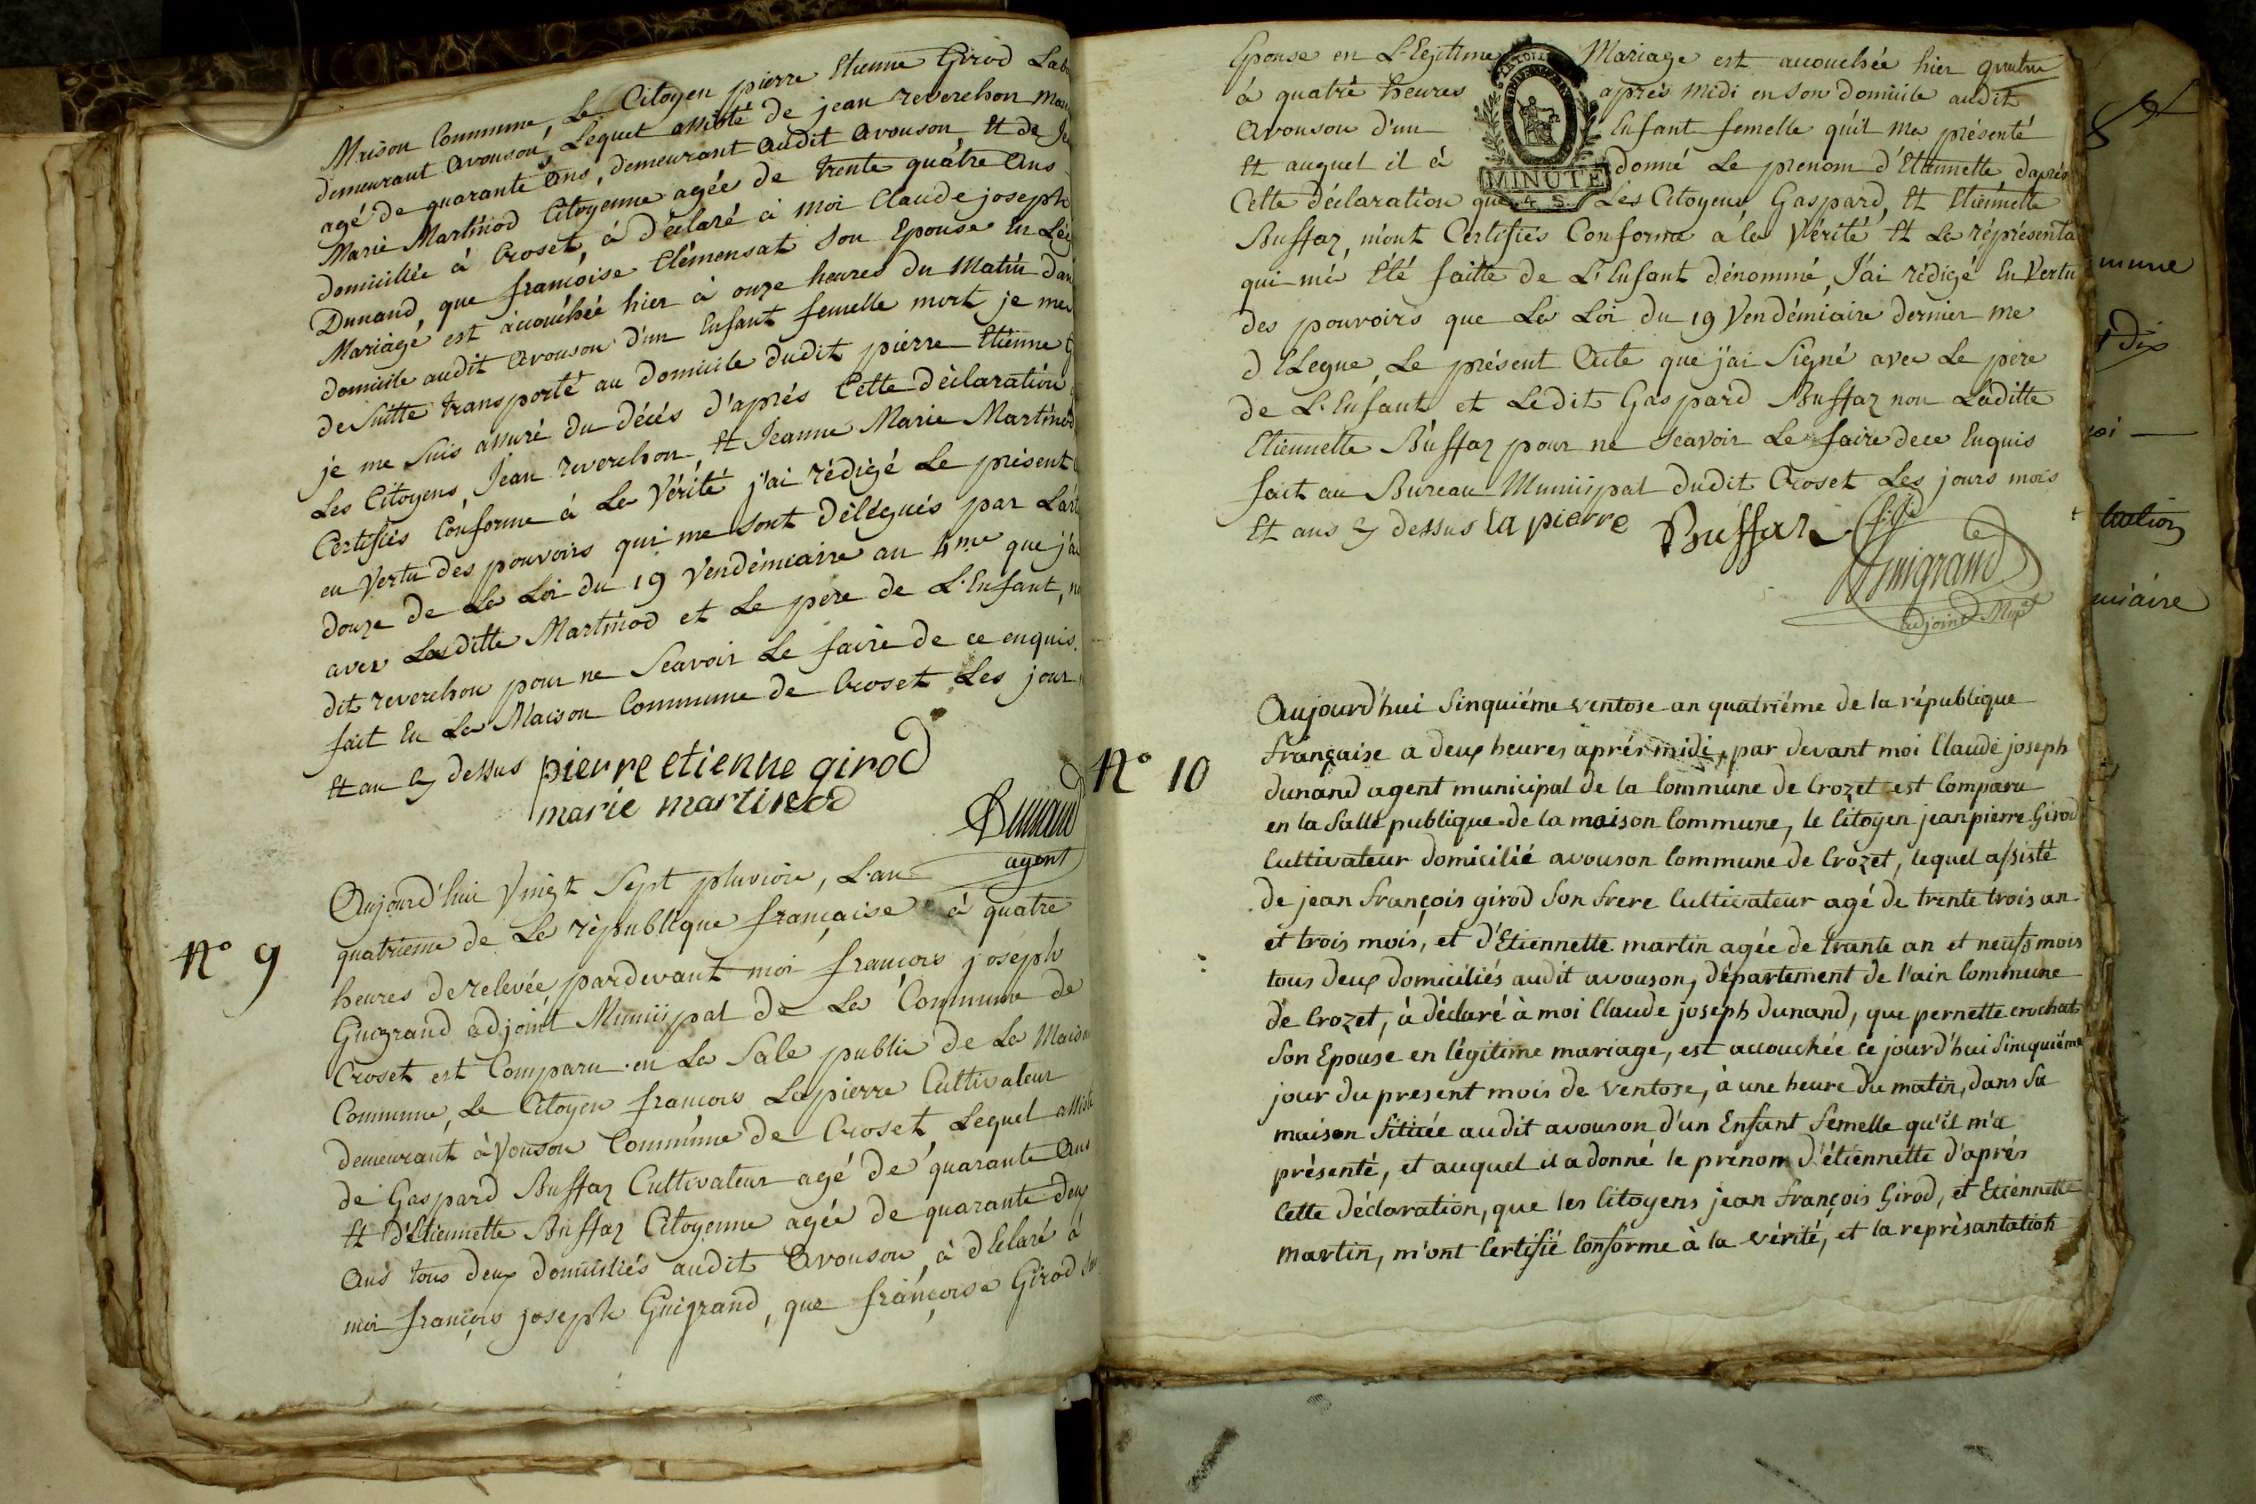 Maison Commune, Le Citoyen pierre Etienne Girod Lab
demeurant avouson, Lequel assisté de jean reverchon
agé de quarante ans, demeurant audit avouson et de Je
Marie Martinod Citoyenne agée de trente quatre ans
domiciliée à Croset, à déclaré à moi Claude joseph
Dunand, que françoise Clémensat son Epouse en Lég
Mariage est accouchée hier à onze heures du Matin dan
domicile audit avouson d'un Enfant femelle mort je me
de suitte transporté au domicile dudit pierre Etienne G
je me suis assuré du décés d'aprés Cette déclaration
Les Citoyens Jean reverchon et Jeanne Marie Martinod
Certifiés Conforme à La Vérité j'ai rédigé Le présent
en Vertu des pouvoirs qui me sont délégués par L'art
douze de La Loi du 19 Vendémiaire an 4me que j'ai
avec Laditte Martinod et Le pere de L'Enfant, n
dit reverchon pour ne Scavoir Le faire de ce enquis.
fait En La Maison Commune de Croset Les jour
et an cy dessus pierre etienne girod
marie martinod
Dunand
agent
N° 9
Aujourd'hui Vingt Sept pluviose, L'an
quatrieme de La république française à quatre
heures de relevée pardevant moi francois joseph
Guigrand adjoint Municipal de La Commune de
Croset est Comparu en La Sale public de La Maison
Commune, Le Citoyen francois Lapierre Cultivateur
demeurant à Vouson Commune de Croset, Lequel assisté
de Gaspard Buffaz Cultivateur agé de quarante Ans
Et d'Etiennette Buffaz Citoyenne agée de quarante deux
Ans tous deux domiciliés audit avouson, à dEclaré à
moi françois joseph Guigrand, que françoise Girod
Epouse en L'Egitime Mariage est accouchée hier quatre
à quatre heures aprés Midi en son domicile audit
avouson d'un Enfant femelle qu'il ma présenté
Et auquel il à donné Le prenom d'Etiennette daprés
Cette déclaration que Les Citoyens Gaspard, Et Etiennette
Buffaz, m'ont Certifiés Conforme à la Vérité Et La réprésenta
qui m'é Eté faitte de L'Enfant dénommé, J'ai rédigé En Vertu
des pouvoirs que La Loi du 19 Vendémiaire dernier me
dElegue, Le présent Acte que j'ai Signé avec Le pere
de L'Enfant et Ledit Gaspard Buffaz non Laditte
Etiennette Buffaz pour ne Scavoir Le faire de ce Enquis
fait au Bureau Municipal dudit Croset Les jours mois
Et ans cy dessus la pierre Buffaz
Guigrand
adjoint
MINUTE
N° 10
Aujourd'hui Sinquiéme ventose an quatriéme de la république
Française a deux heures aprés midi, par devant moi Claude joseph
dunand agent municipal de la Commune de Crozet est Comparu
en la Salle publique de la maison Commune, le Citoyen jean pierre Girod
Cultivateur domicilié avouson Commune de Crozet, lequel assisté
de jean François girod Son Frere Cultivateur agé de trente trois an
et trois mois, et d'Etiennette martin agée de trante an et neuf mois
tous deux domiciliés audit avouson, département de l'ain Commune
de Crozet, à déclaré à moi Claude joseph dunand, que pernette crochat
Son Epouse en légitime mariage, est accouchée ce jourd'hui Sincquiéme
jour du present mois de ventose, à une heure du matin, dans Sa
maison Située audit avouson d'un Enfant Femelle qu'il m'a
présenté, et auquel il a donné le prénom d'étiennette d'aprés
Cette déclaration, que les Citoyens jean François Girod, et Etiennette
martin, m'ont Certifié Conforme à la vérité, et la représantation
mune
dix
moi
tation
miaire